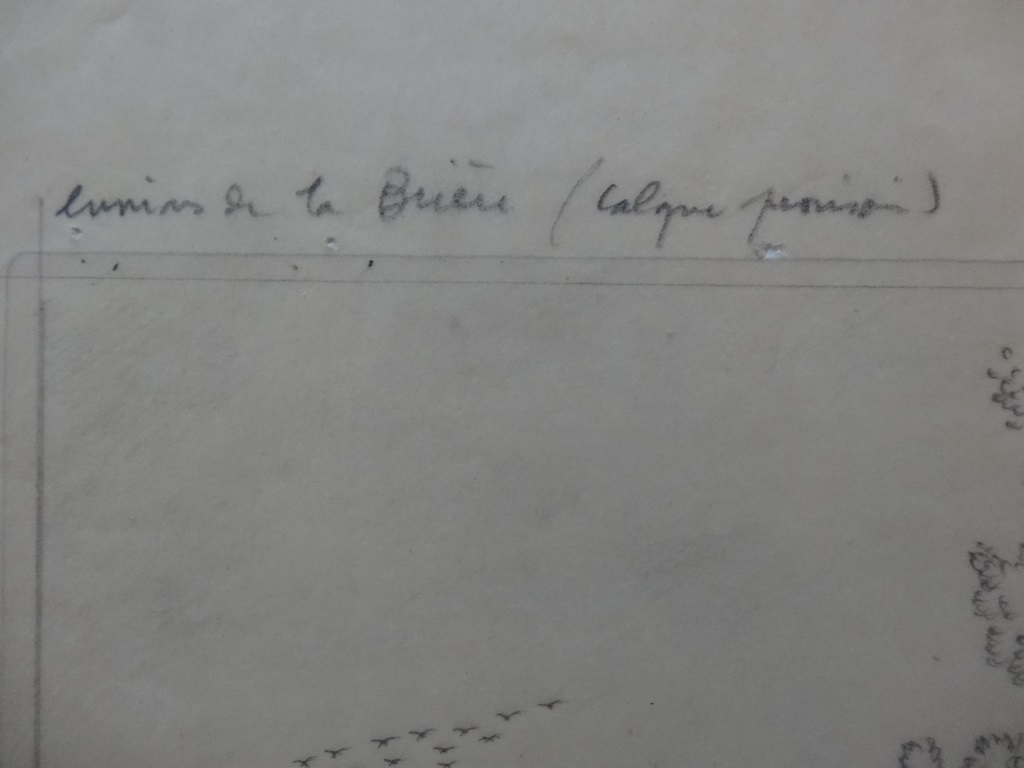 environs de la Brière (calque provisoire)